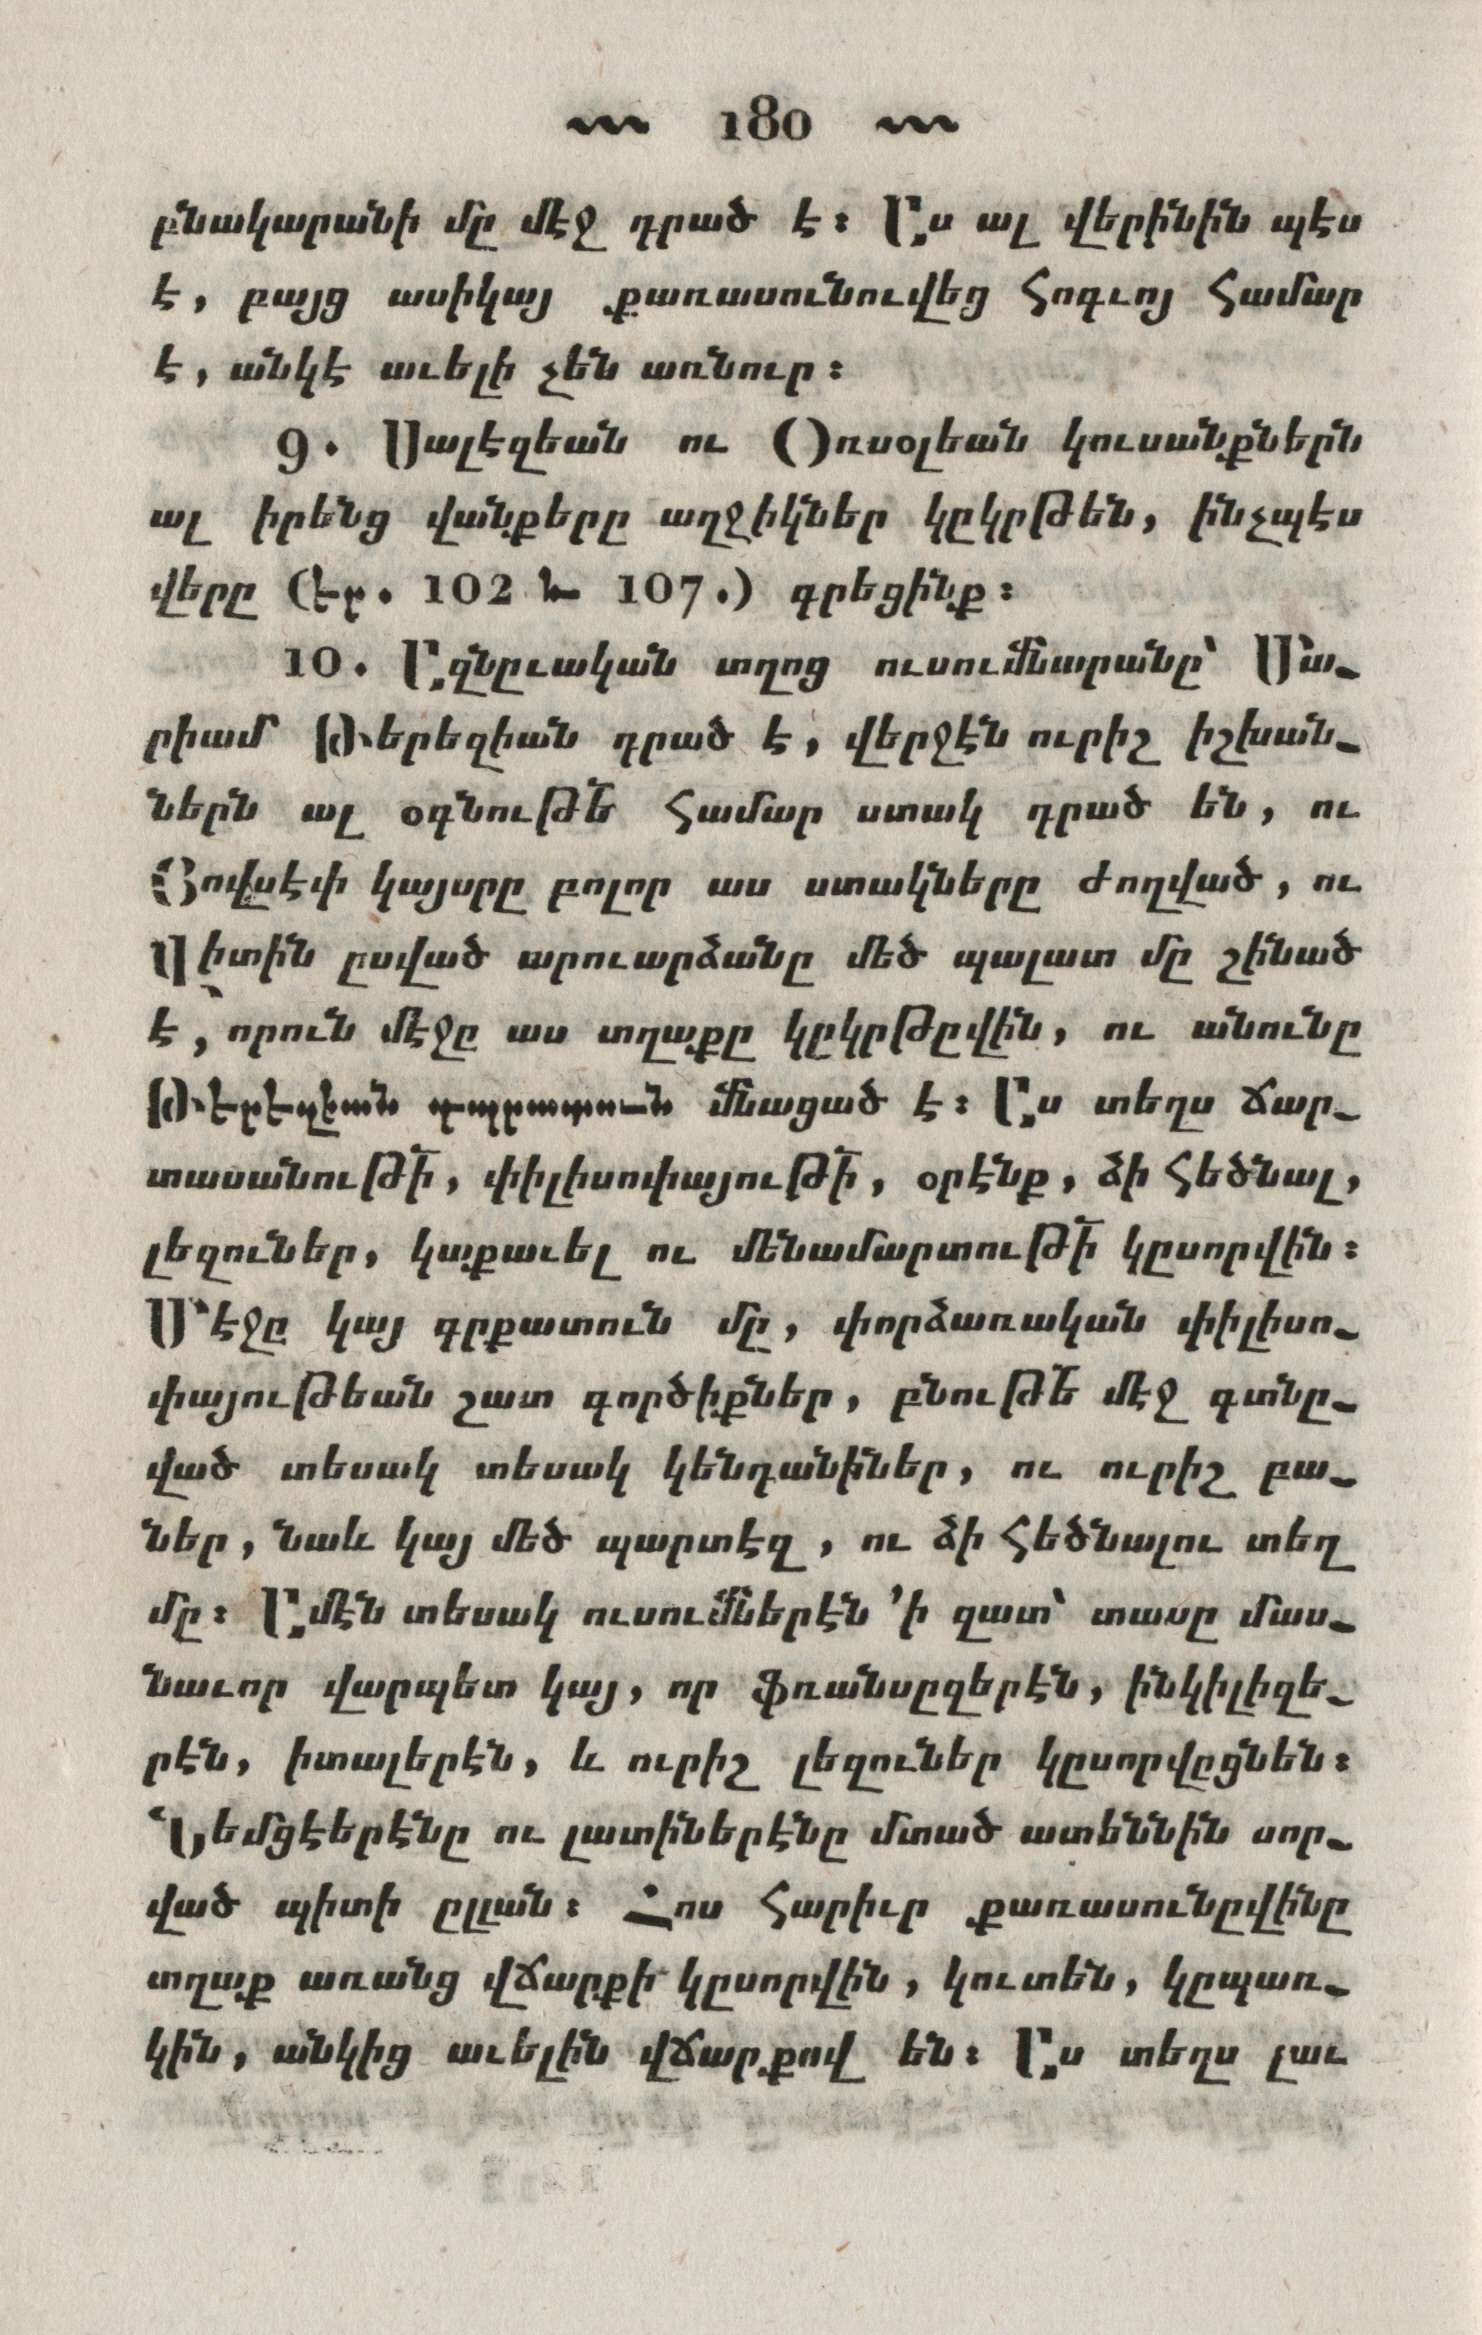 180
բնակարանի մը մէջ դրած է։ Աս ալ վերինին պէս
է, բայց ասիկայ քառասունուվեց հոգւոյ համար
է, անկէ աւելի չեն առնուր։
9. Սալէզեան ու Օռսօլեան կուսանքներն
ալ իրենց վանքերը աղջիկներ կըկրթեն, ինչպէս
վերը (էր. 102 և 107.) գրեցինք։
10. Ազնըւական տղոց ուսումնարանը՝ Մա֊
րիամ Թերեզիան դրած է, վերջէն ուրիշ իշխան֊
ներն ալ օգնութե՟ համար ստակ դրած են, ու
Յովսէփ կայսրը բոլոր աս ստակները ժողված, ու
Վիտին ըսված արուարձանը մեծ պալատ մը շինած
է, որուն մէջը աս տղաքը կըկրթըվին, ու անունը
Թէրէզեան վարժատուն մնացած է։ Աս տեղս ճար֊
տասանութի՟, փիլիսոփայութի՟, օրէնք, ձի հեծնալ,
լեզուներ, կաքաւել ու մենամարտութի՟ կըսորվին։
Մէջը կայ գրքատուն մը, փորձառական փիլիսո֊
փայութեան շատ գործիքներ, բնութե՟ մէջ գտնը֊
ված տեսակ տեսակ կենդանիներ, ու ուրիշ բա֊
ներ, նաև կայ մեծ պարտէզ, ու ձի հեծնալու տեղ
մը։ Ամէն տեսակ ուսումներէն ՚ի զատ՝ տասը մաս֊
նաւոր վարպետ կայ, որ ֆռանսըզերէն, ինկիլիզե֊
րէն, իտալերէն, և ուրիշ լեզուներ կըսորվըցնեն։
Նեմցէերէնը ու լատիներէնը մտած ատեննին սոր֊
ված պիտի ըլլան։ Հոս հարիւր քառասունըվինը
տղաք առանց վճարքի կըսորվին, կուտեն, կըպառ֊
կին, անկից աւելին վճարքով են։ Աս տեղս լաւ